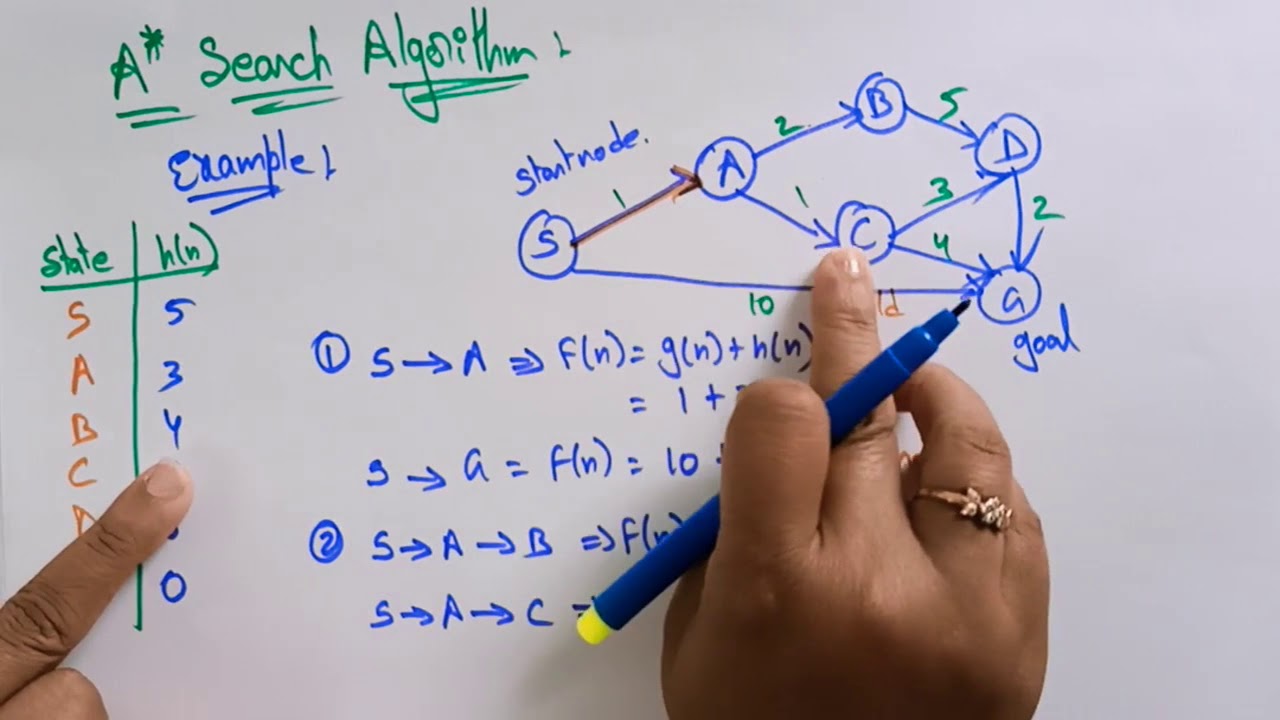 A* Search Algorithm :
Example :
State h(n)
S 5
A 3
B 4
C
D
0
start node.
S
A
B
C
D
G
goal
1
2
5
1
3
4
2
10
① S → A ⇒ f(n) = g(n) + h(n)
= 1 +
S → G = f(n) = 10
② S → A → B ⇒ f(n)
S → A → C